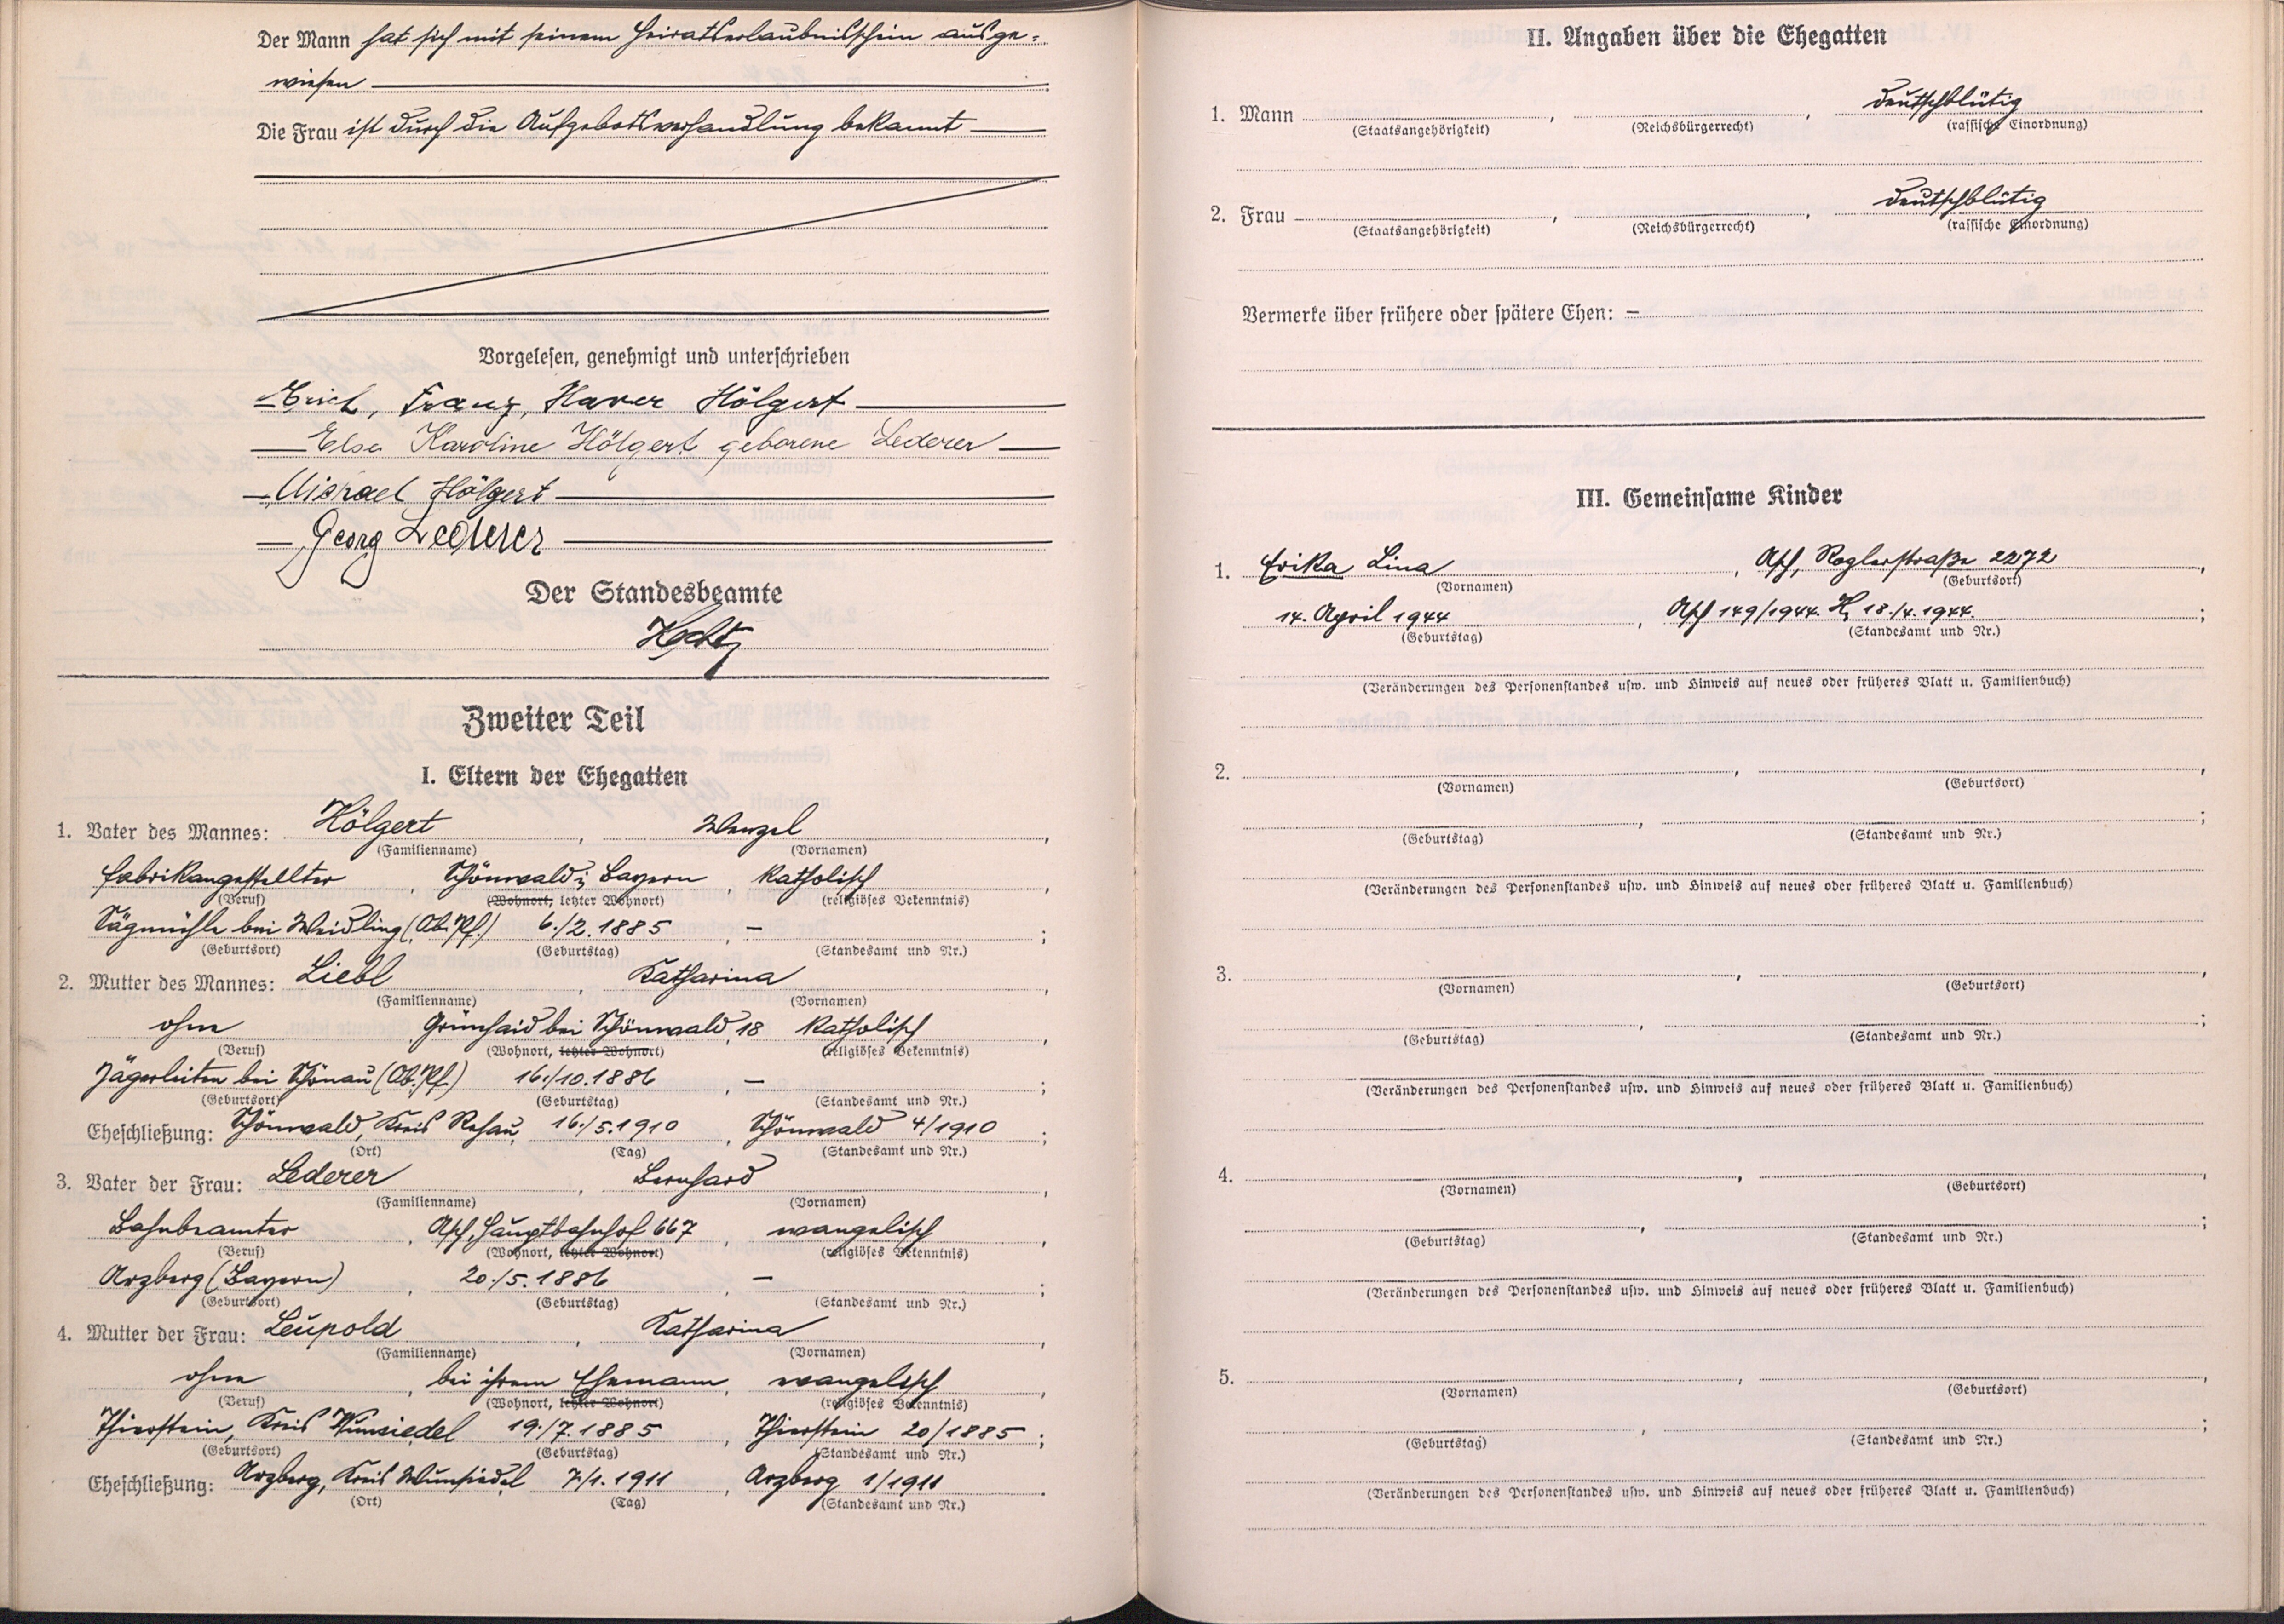 Der Mann hat sich mit seinem Heiratserlaubnisschein ausge-
wiesen
Die Frau ist durch die Aufgebotsverhandlung bekannt
Vorgelesen, genehmigt und unterschrieben
Erich, Franz, Xaver Hölgert
Elsa Karoline Hölgert geborene Lederer
Michael Hölgert
Georg Lederer
Der Standesbeamte
Zweiter Teil
I. Eltern der Ehegatten
1. Vater des Mannes: Hölgert, Wenzel,
(Familienname) (Vornamen)
Fabrikangestellter, Schönwald i. Bayern, katholisch,
(Beruf) (Wohnort, letzter Wohnort) (religiöses Bekenntnis)
Sägmühle bei Weidling (Ob. Pf.) 6./2. 1885, – ;
(Geburtsort) (Geburtstag) (Standesamt und Nr.)
2. Mutter des Mannes: Liebl, Katharina,
(Familienname) (Vornamen)
ohne, Grünhaid bei Schönwald 18 katholisch,
(Beruf) (Wohnort, letzter Wohnort) (religiöses Bekenntnis)
Jägersleiten bei Schönau (Ob. Pf.) 16./10. 1886, – ;
(Geburtsort) (Geburtstag) (Standesamt und Nr.)
Eheschließung: Schönwald, Kreis Rehau, 16./5. 1910, Schönwald 4/1910 ;
(Ort) (Tag) (Standesamt und Nr.)
3. Vater der Frau: Lederer, Bernhard,
(Familienname) (Vornamen)
Bahnbeamter, Asch, Hauptbahnhof 667, evangelisch,
(Beruf) (Wohnort, letzter Wohnort) (religiöses Bekenntnis)
Arzberg (Bayern), 20./5. 1886, – ;
(Geburtsort) (Geburtstag) (Standesamt und Nr.)
4. Mutter der Frau: Leupold, Katharina,
(Familienname) (Vornamen)
ohne, bei ihrem Ehemann, evangelisch,
(Beruf) (Wohnort, letzter Wohnort) (religiöses Bekenntnis)
Thierstein, Kreis Wunsiedel 19./7. 1885, Thierstein 20/1885 ;
(Geburtsort) (Geburtstag) (Standesamt und Nr.)
Eheschließung: Arzberg, Kreis Wunsiedel 7/1. 1911, Arzberg 1/1911.
(Ort) (Tag) (Standesamt und Nr.)
II. Angaben über die Ehegatten
1. Mann , , deutschblütig
(Staatsangehörigkeit) (Reichsbürgerrecht) (rassische Einordnung)
2. Frau , , deutschblütig
(Staatsangehörigkeit) (Reichsbürgerrecht) (rassische Einordnung)
Vermerke über frühere oder spätere Ehen: –
III. Gemeinsame Kinder
1. Erika Lina, Asch, Roglerstraße 2272,
(Vornamen) (Geburtsort)
14. April 1944, Asch 149/1944. H, 18./4. 1944. ;
(Geburtstag) (Standesamt und Nr.)
(Veränderungen des Personenstandes usw. und Hinweis auf neues oder früheres Blatt u. Familienbuch)
2. , ,
(Vornamen) (Geburtsort)
, ;
(Geburtstag) (Standesamt und Nr.)
(Veränderungen des Personenstandes usw. und Hinweis auf neues oder früheres Blatt u. Familienbuch)
3. , ,
(Vornamen) (Geburtsort)
, ;
(Geburtstag) (Standesamt und Nr.)
(Veränderungen des Personenstandes usw. und Hinweis auf neues oder früheres Blatt u. Familienbuch)
4. , ,
(Vornamen) (Geburtsort)
, ;
(Geburtstag) (Standesamt und Nr.)
(Veränderungen des Personenstandes usw. und Hinweis auf neues oder früheres Blatt u. Familienbuch)
5. , ,
(Vornamen) (Geburtsort)
, ;
(Geburtstag) (Standesamt und Nr.)
(Veränderungen des Personenstandes usw. und Hinweis auf neues oder früheres Blatt u. Familienbuch)